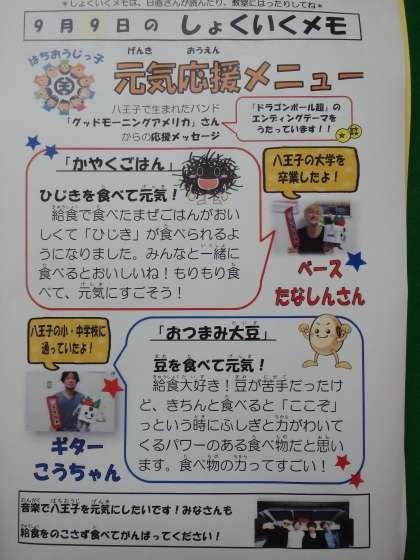 ＊しょくいくメモは、日直さんが読んだり、教室にはったりしてね＊
９月９日の しょくいくメモ
はちおうじっ子
げんき おうえん
元気応援メニュー
八王子で生まれたバンド
「グッドモーニングアメリカ」さん
からの応援メッセージ
「ドラゴンボール超」の
エンディングテーマを
うたっています！！
「かやくごはん」
ひじきを食べて元気！
給食で食べたまぜごはんがおい
しくて「ひじき」が食べられるよ
うになりました。みんなと一緒に
食べるとおいしいね！もりもり食
べて、元気にすごそう！
八王子の大学を
卒業したよ！
ベース
たなしんさん
八王子の小・中学校に
通っていたよ！
ギター
こうちゃん
「おつまみ大豆」
豆を食べて元気！
給食大好き！豆が苦手だったけ
ど、きちんと食べると「ここぞ」
っという時にふしぎと力がわいて
くるパワーのある食べ物だと思い
ます。食べ物の力ってすごい！
おんがく はちおうじ げんき
音楽で八王子を元気にしたいです！みなさんも
きゅうしょく
給食をのこさず食べてがんばってください！